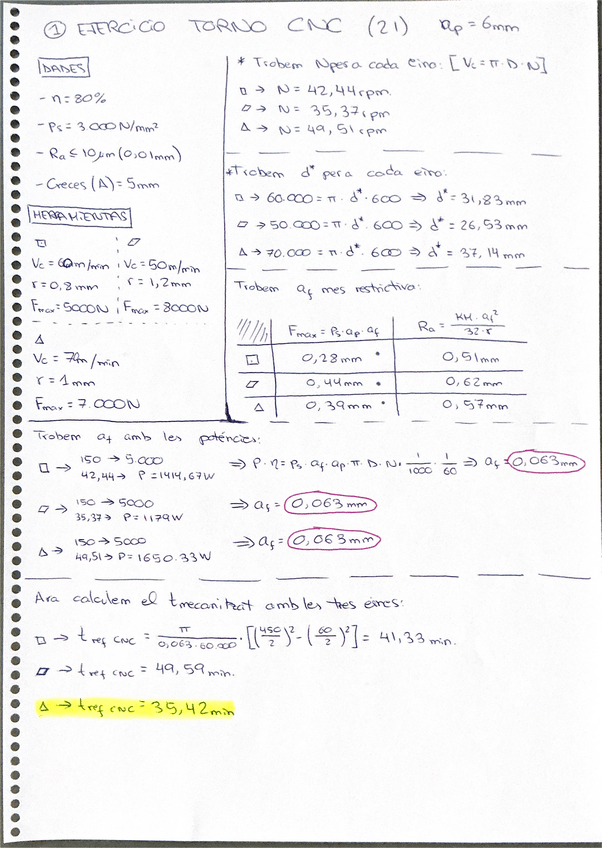 ① EJERCICIO TORNO CNC (21) ap = 6mm
DADES
- η = 80%
- Ps = 3.000 N/mm²
- Ra ≤ 10 μm (0,01mm)
- Creces (Δ) = 5mm
HERRAMIENTAS
□ ▱
Vc = 60m/min Vc = 50m/min
r = 0,8mm r = 1,2mm
Fmax = 5000N Fmax = 8000N
Δ
Vc = 70m/min
r = 1mm
Fmax = 7.000N
* Trobem N per a cada eina: [Vc = π · D · N]
□ → N = 42,44rpm.
▱ → N = 35,37rpm
Δ → N = 49,51rpm.
* Trobem d* per a cada eina:
□ → 60.000 = π · d* · 600 ⇒ d* = 31,83mm
▱ → 50.000 = π · d* · 600 ⇒ d* = 26,53mm
Δ → 70.000 = π · d* · 600 ⇒ d* = 37,14mm
Trobem af mes restrictiva:
Fmax = Ps · ap · af Ra = KM · af² / 32 · r
□ 0,28mm * 0,51mm
▱ 0,44mm * 0,62mm
Δ 0,39mm * 0,57mm
Trobem af amb les poténcies:
□ → 150 → 5.000
42,44 → P = 1414,67W ⇒ P · η = Ps · af · ap · π · D · N · 1/1000 · 1/60 ⇒ af = 0,063mm
▱ → 150 → 5000
35,37 → P = 1179W ⇒ af = 0,063mm
Δ → 150 → 5000
49,51 → P = 1650.33W ⇒ af = 0,063mm
Ara calculem el tmecanitzat amb les tres eines:
□ → tref CNC = π / 0,063 · 60.000 · [(450/2)² - (60/2)²] = 41,33 min.
▱ → tref CNC = 49,59min.
Δ → tref CNC = 35,42min